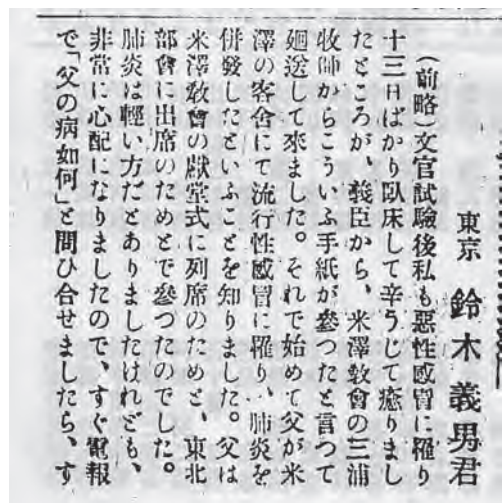 東京 鈴木義男君
(前略)文官試驗後私も惡性感冒に罹り
十三日ばかり臥床して辛うじて癒りまし
たところが、義臣から、米澤敎會の三浦
牧師からこういふ手紙が參つたと言つて
廻送して來ました。それで始めて父が米
澤の客舍にて流行性感冒に罹り、肺炎を
併發したといふことを知りました。父は
米澤敎會の獻堂式に列席のためと、東北
部會に出席のためとで參つたのでした。
肺炎は輕い方だとありましたけれども、
非常に心配になりましたので、すぐ電報
で「父の病如何」と問ひ合せましたら、す